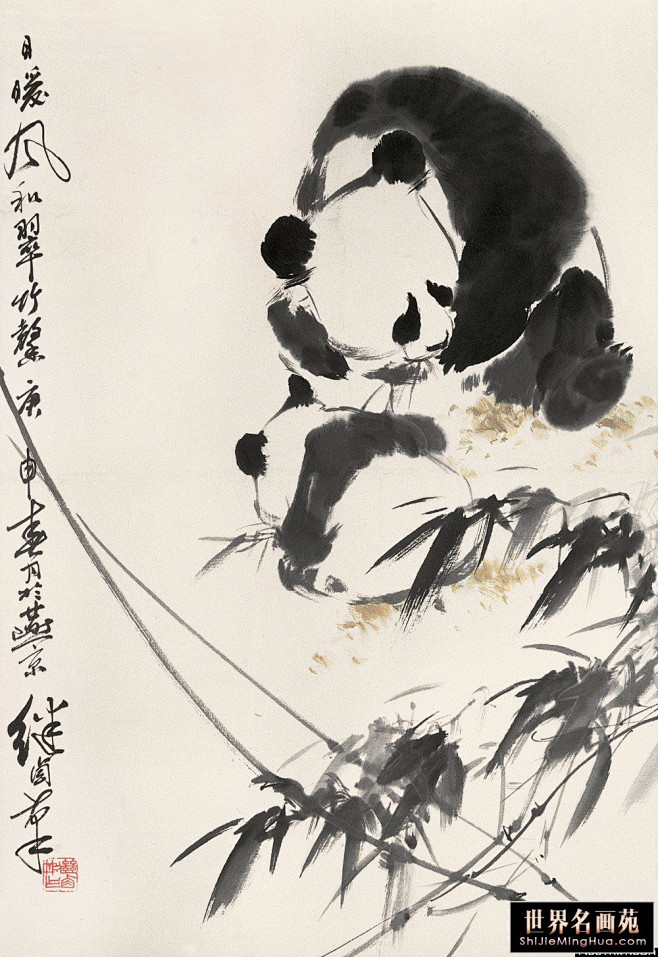 日暖风和翠竹馨庚申春月於燕京继卣并
世界名画苑
ShiJieMingHua.com